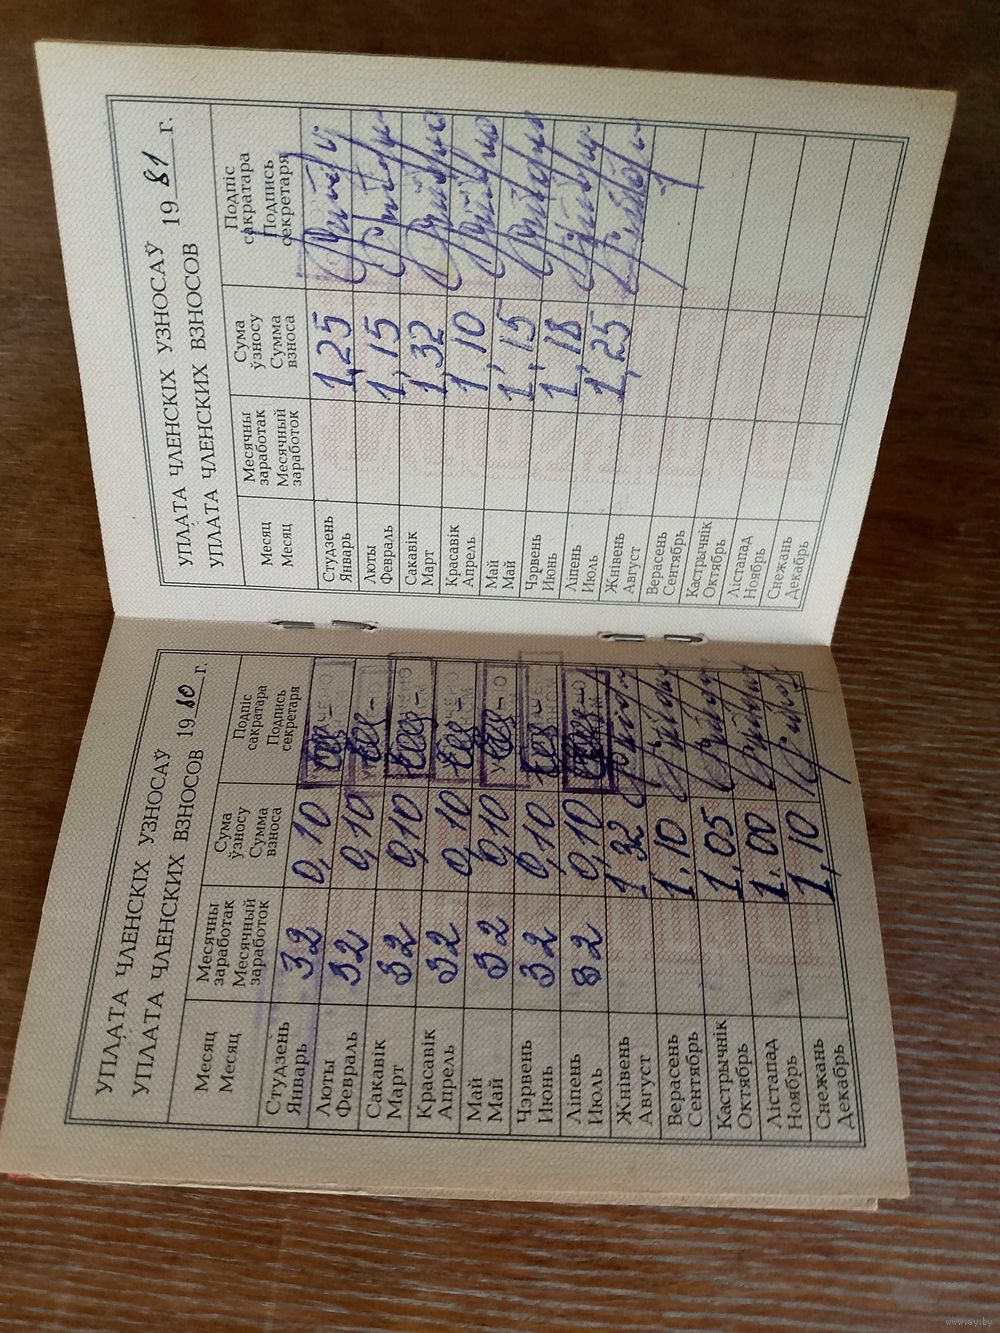 УПЛАТА ЧЛЕНСКІХ УЗНОСАЎ
УПЛАТА ЧЛЕНСКИХ ВЗНОСОВ 1980 г.
Месяц
Месяц
Месячны
заработак
Месячный
заработок
Сума
ўзносу
Сумма
взноса
Подпіс
сакратара
Подпись
секретаря
Студзень
Январь 32 0,10
Люты
Февраль 32 0,10
Сакавік
Март 32 0,10
Красавік
Апрель 32 0,10
Май
Май 32 0,10
Чэрвень
Июнь 32 0,10
Ліпень
Июль 32 0,10
Жнівень
Август 1 32
Верасень
Сентябрь 1.10
Кастрычнік
Октябрь 1,05
Лістапад
Ноябрь 1.00
Снежань
Декабрь 1,10
УПЛАТА ЧЛЕНСКІХ УЗНОСАЎ
УПЛАТА ЧЛЕНСКИХ ВЗНОСОВ 1981 г.
Месяц
Месяц
Месячны
заработак
Месячный
заработок
Сума
ўзносу
Сумма
взноса
Подпіс
сакратара
Подпись
секретаря
Студзень
Январь 1,25
Люты
Февраль 1,15
Сакавік
Март 1,32
Красавік
Апрель 1,10
Май
Май 1,15
Чэрвень
Июнь 1,18
Ліпень
Июль 1,25
Жнівень
Август
Верасень
Сентябрь
Кастрычнік
Октябрь
Лістапад
Ноябрь
Снежань
Декабрь
www.ay.by